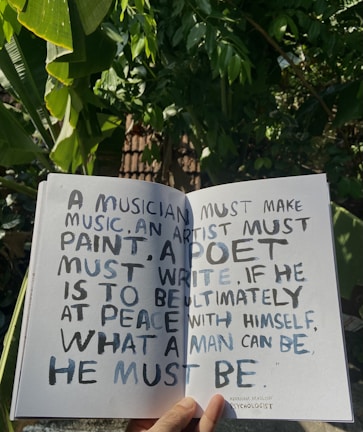 A MUSICIAN MUST MAKE
MUSIC, AN ARTIST MUST
PAINT, A POET
MUST WRITE, IF HE
IS TO BE ULTIMATELY
AT PEACE WITH HIMSELF.
WHAT A MAN CAN BE,
HE MUST BE.
PSYCHOLOGIST